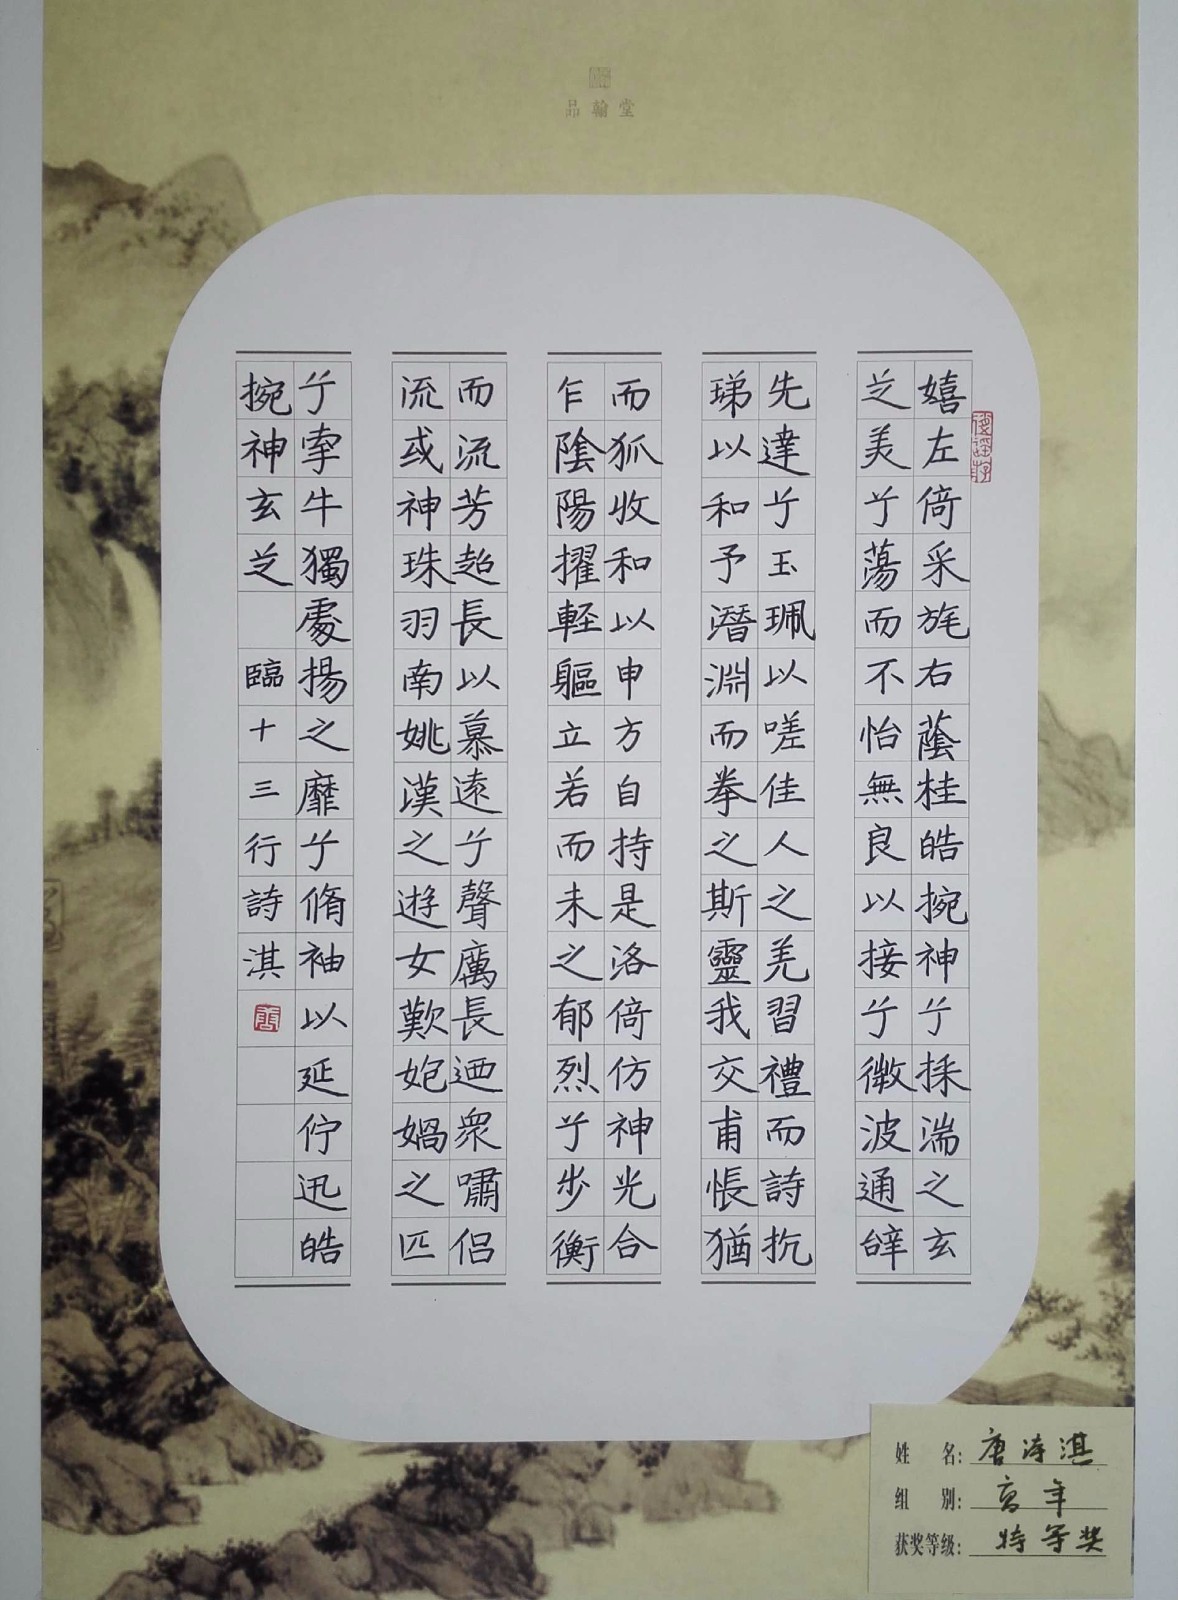 品翰堂
嬉左倚采旄右蔭桂皓捥神兮採湍之玄
芝美兮蕩而不怡無良以接兮微波通辝
先達兮玉珮以嗟佳人之羌習禮而詩抗
珶以和予潛淵而拳之斯靈我交甫悵猶
而狐收和以申方自持是洛倚仿神光合
乍陰陽擢軽軀立若而未之郁烈兮步衡
而流芳超長以慕遠兮聲厲長迺衆嘯侣
流或神珠羽南姚漢之遊女歎匏媧之匹
兮牽牛獨處揚之靡兮脩袖以延佇迅皓
捥神玄芝 臨十三行詩淇
唐
姓 名: 唐诗淇
组 别: 高年
获奖等级: 特等奖